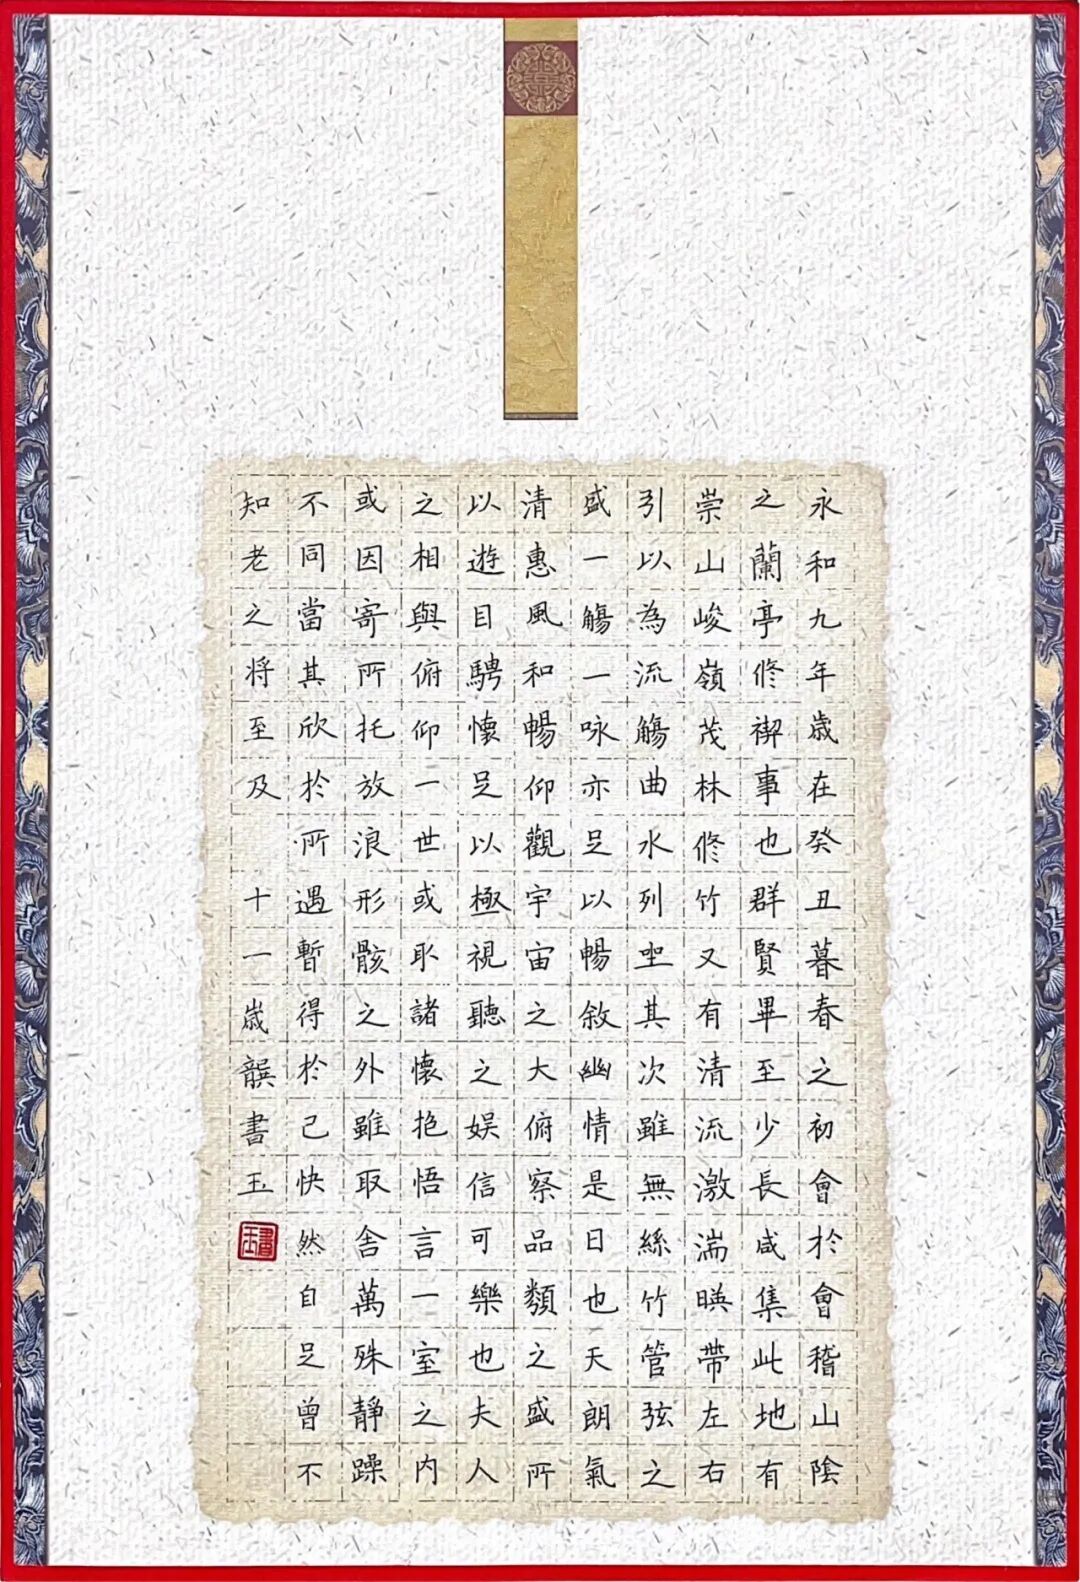 永和九年歲在癸丑暮春之初會於會稽山陰
之蘭亭修禊事也群賢畢至少長咸集此地有
崇山峻嶺茂林修竹又有清流激湍暎帶左右
引以為流觴曲水列坐其次雖無絲竹管弦之
盛一觴一咏亦足以暢敘幽情是日也天朗氣
清惠風和暢仰觀宇宙之大俯察品類之盛所
以遊目騁懷足以極視聽之娛信可樂也夫人
之相與俯仰一世或取諸懷抱悟言一室之內
或因寄所托放浪形骸之外雖取舍萬殊靜躁
不同當其欣於所遇暫得於己快然自足曾不
知老之将至及 十一歲龔書玉
書玉